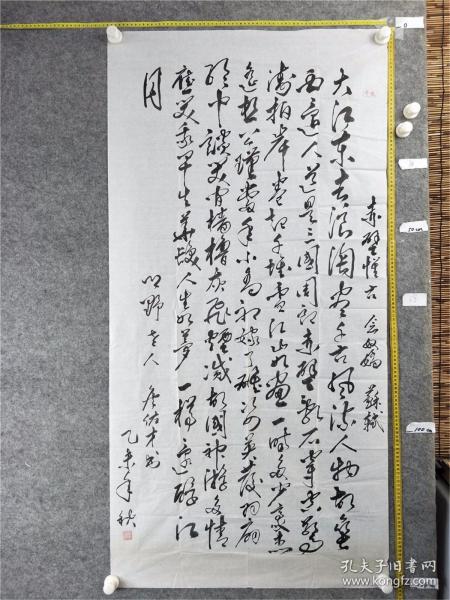 赤壁懷古 念奴嬌 蘇軾
大江東去浪淘盡千古風流人物故壘
西邊人道是三國周郎赤壁亂石穿空驚
濤拍岸捲起千堆雪江山如畫一時多少豪杰
遙想公瑾當年小喬初嫁了雄姿英發羽扇
綸巾談笑間檣櫓灰飛煙滅故國神遊多情
應笑我早生華髮人生如夢一樽還酹江
月
野老人
乙未年秋
0
50cm
100cm
孔夫子旧书网
www.kongfz.com